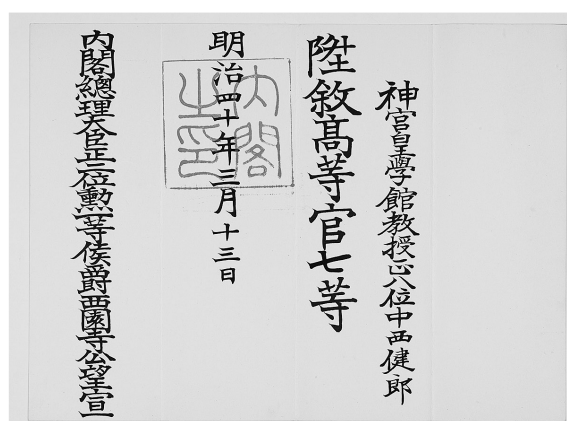 神宮皇學館教授正八位中西健郎
陞敘高等官七等
明治四十年三月十三日
內閣之印
內閣總理大臣正二位勲一等侯爵西園寺公望宣